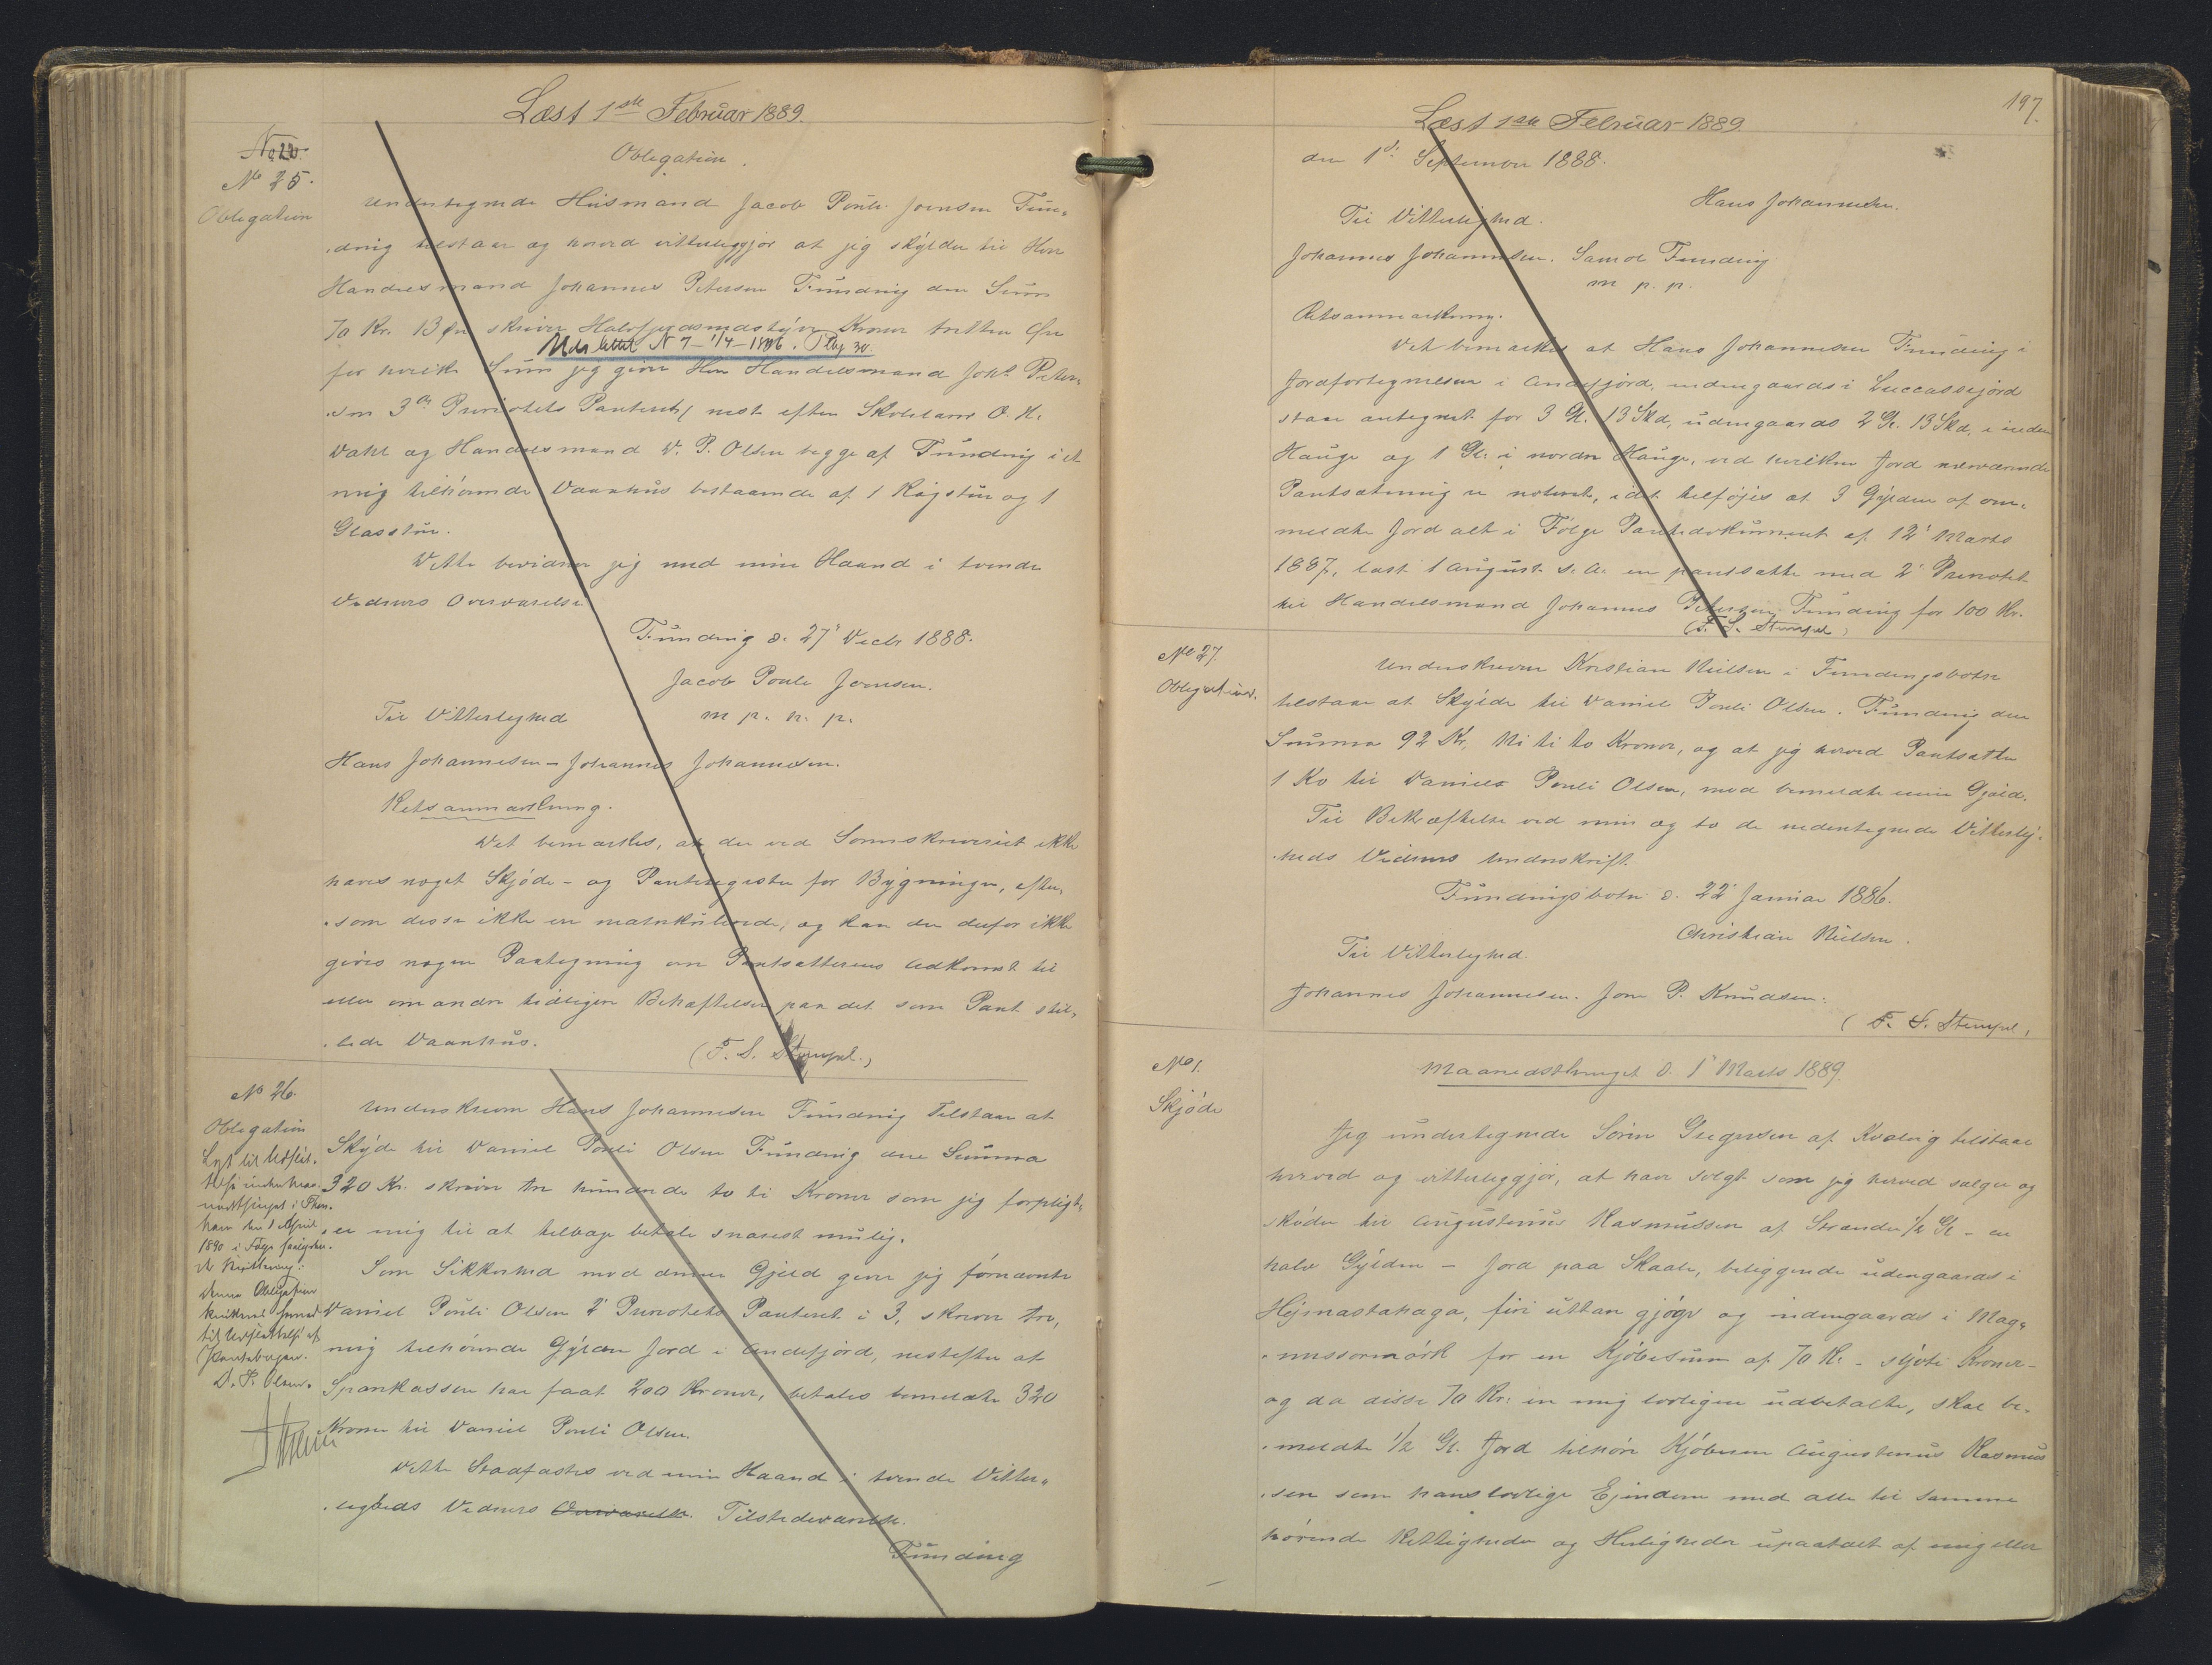 Læst 1ste Februar 1889.
No 20.
No 25.
Obligation
Obligation.
Undertegnede Húsmand Jacob Poúli Joensen Fún-
ding tilstaar og herved vitterliggjør at jeg skýlder til Herr
Handelsmand Johannes Petersen Fúnding den Súm
70 Kr. 13 Øre skriver Halvfjerdsindstýve Kroner tretten Øre
Udslettet N 7 - 1/4 - 1906.
for hvilke Súm jeg giver Herr Handelsmand Johs Peter-
sen 3die Prioritets Panteret næst efter Skolelærer O. H.
Dahl og Handelsmand D. P. Olsen begge af Fúnding i et
mig tilhørende Vaanhús bestaaende af 1 Røgstúe og 1
Glasstúe.
Dette bevidner jeg med min Haand i tvende
Vidners Overværelse
Fúnding d. 27' Decbr 1888.
Jacob Poule Joensen.
m p. n. p.
Til Vitterlighed
Hans Johannesen - Johannes Johannesen.
Retsanmærkning.
Det bemærkes, at der ved Sorenskriveriet ikke
haves noget Skjøde- og Panteregister for Býgninger, efter-
som disse ikke ere matrikúlerede, og kan der derfor ikke
gives nogen Paategning om Pantsætterens Adkomst til
eller om andre tidligere Behæftelser paa det som Pant stil-
lede Vaanhús.
(F. S. Stempel.)
No 26.
Obligation
Lyst til Udslet-
telse inden Maa-
nedsthinget i Thors-
havn den 1 April
1890 i Følge saalyden-
de Kvittering:
Denne Obligation
kvitteres herved
til Udslettelse af
Pantebogen.
D. P. Olsen.
Underskreven Hans Johannesen Fúnding Tilstaar at
Skýlde til Daniel Poúli Olsen Fúnding den Summa
320 Kr. skriver tre húndrede to ti Kroner som jeg forpligt-
er mig til at tilbage betale snarest múlig.
Som Sikkerhed mod denne Gjæld giver jeg fornævnte
Daniel Poúli Olsen 2' Prioritets Panteret i 3, skriver tre,
mig tilhørende Gýlden Jord i Andefjord, nestefter at
Sparekassen har faaet 200 Kroner, betales bemeldte 320
Kroner til Daniel Poúli Olsen.
Dette Stadfæstes ved min Haand i tvende Vitter-
ligheds Vidners Overværelse. Tilstedeværelse.
Fúnding
197.
Læst 1ste Februar 1889.
den 1ste September 1888.
Hans Johannesen.
Til Vitterlighed.
Johannes Johannesen. Samal Funding
m p. p.
Retsanmærkning.
Det bemærkes at Hans Johannesen Fúnding i
Jordfortegnelsen i Andefjord, indengaards i Luccassejord
staar antegnet for 3 Gl. 13 Skd, údengaards 2 Gl. 13 Skd. i inden
Haúge og 1 Gl. i nordre Haúge, ved hvilken Jord nærværende
Pantsætning er noteret, idet tilføjes at 3 Gýlden af om-
meldte Jord alt i Følge Pantedokúment af 12' Marts
1887, læst 1 Aúgúst s. A. er pantsatte med 2' Prioritet
til Handelsmand Johannes Petersen, Fúnding for 100 Kr.
(F. S. Stempel)
No 27.
Obligation.
Underskreven Kristian Nielsen i Fundingsbotn
tilstaar at Skýlde til Daniel Poúli Olsen. Fúnding den
Súmma 92 Kr. Ni ti to Kroner, og at jeg herved Pantsætter
1 Ko til Daniel Poúli Olsen, mod bemeldte min Gjæld.
Til Bekræftelse ved min og to de nedentegnede Vitterlig-
heds Vidners Underskrift.
Fúndingsbotn d. 22' Januar 1886.
Christian Nielsen.
Til Vitterlighed.
Johannes Johannesen. Jone P. Knúdsen.
(F. S. Stempel)
Maanedsthinget d. 1' Marts 1889.
No 1.
Skjøde
Jeg úndertegnede Sørin Gregersen af Kvalvig tilstaar
herved og vitterliggjør, at have solgt som jeg herved sælger og
skøder til Aúgústinús Rasmússen af Strender 1/2 Gl - en
halv Gýlden - Jord paa Skaale, beliggende údengaards i
Hejmastahaga, firi úttan gjógv og indengaards i Mag-
nussarmørk for en Kjøbesúm af 70 Kr. - sýtti Kroner -
og da disse 70 Kr. ere mig lovligen údbetalte, skal be-
meldte 1/2 Gl. Jord tilhøre Kjøberen Aúgústinús Rasmús
sen som hans lovlige Ejendom med alle til samme
hørende Rettigheder og Herligheder úpaatalt af mig eller